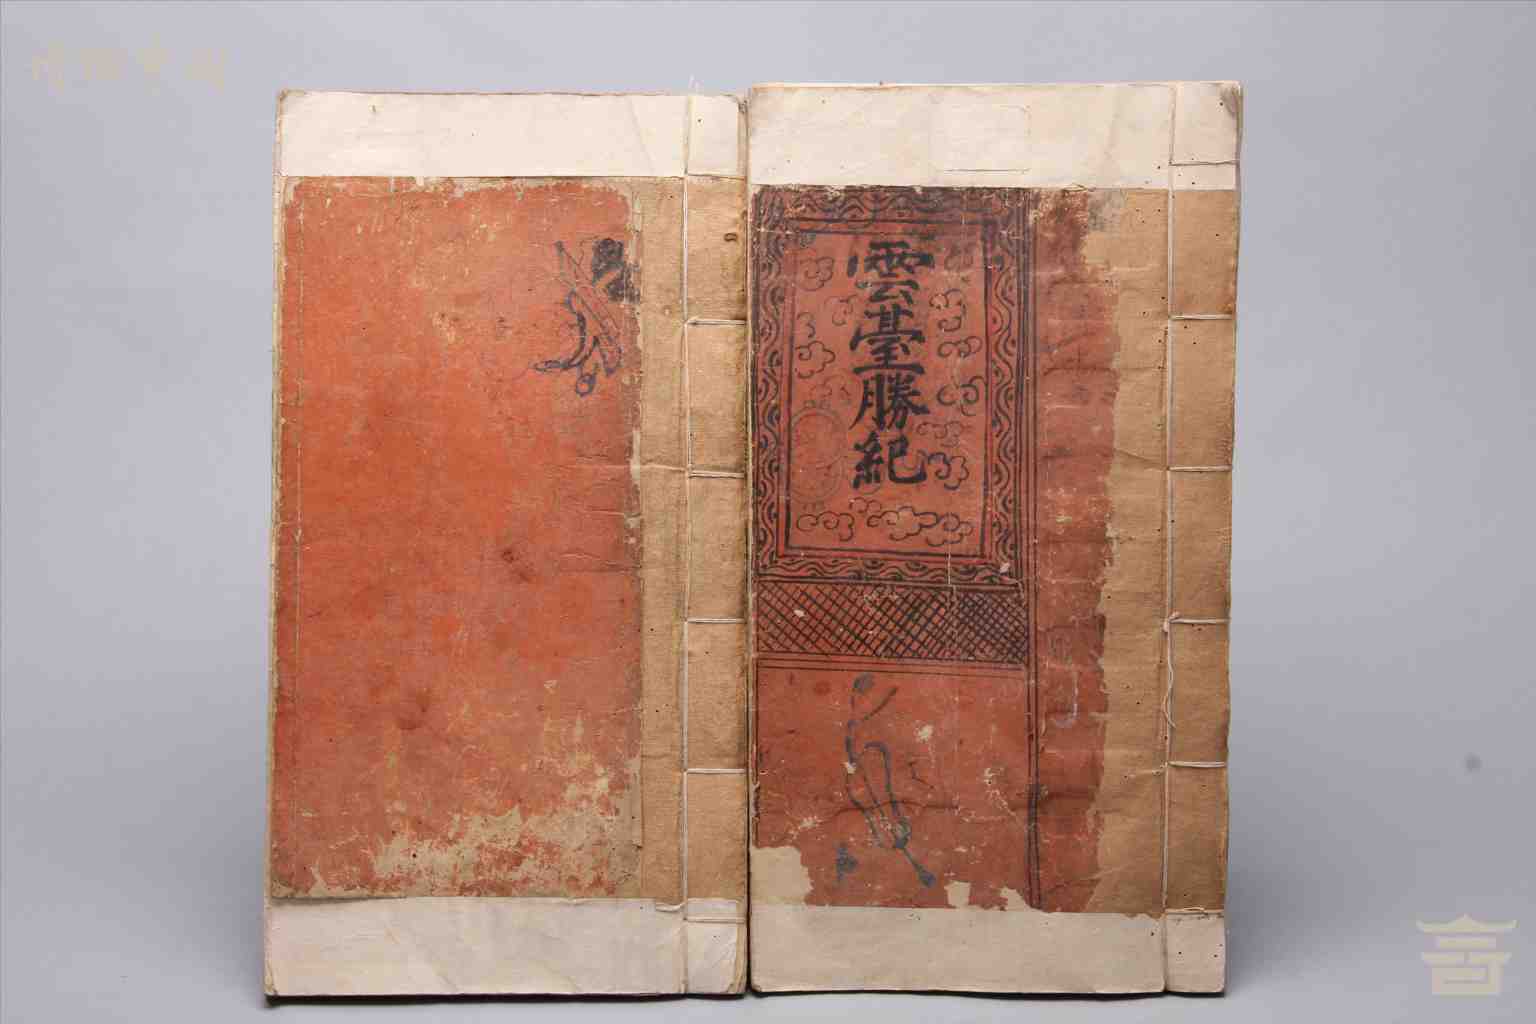 雲臺勝紀